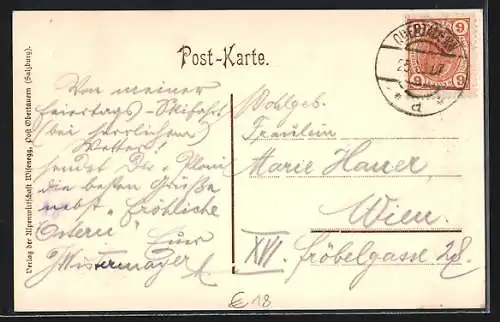 Post-Karte.
Verlag der Alpenwirtschaft Wisenegg, Post Obertauern (Salzburg).
OBERTAUERN
9 9
9 9
Von meiner
Feiertags-Skifahrt
(bei herrlichem
Wetter!)
sendet Dir
die besten Grüße
nebst "fröhliche
Ostern" Euer
Wohlgeb.
Fräulein
Marie Hauer,
Wien.
XVI. Fröbelgasse 28.
€ 18